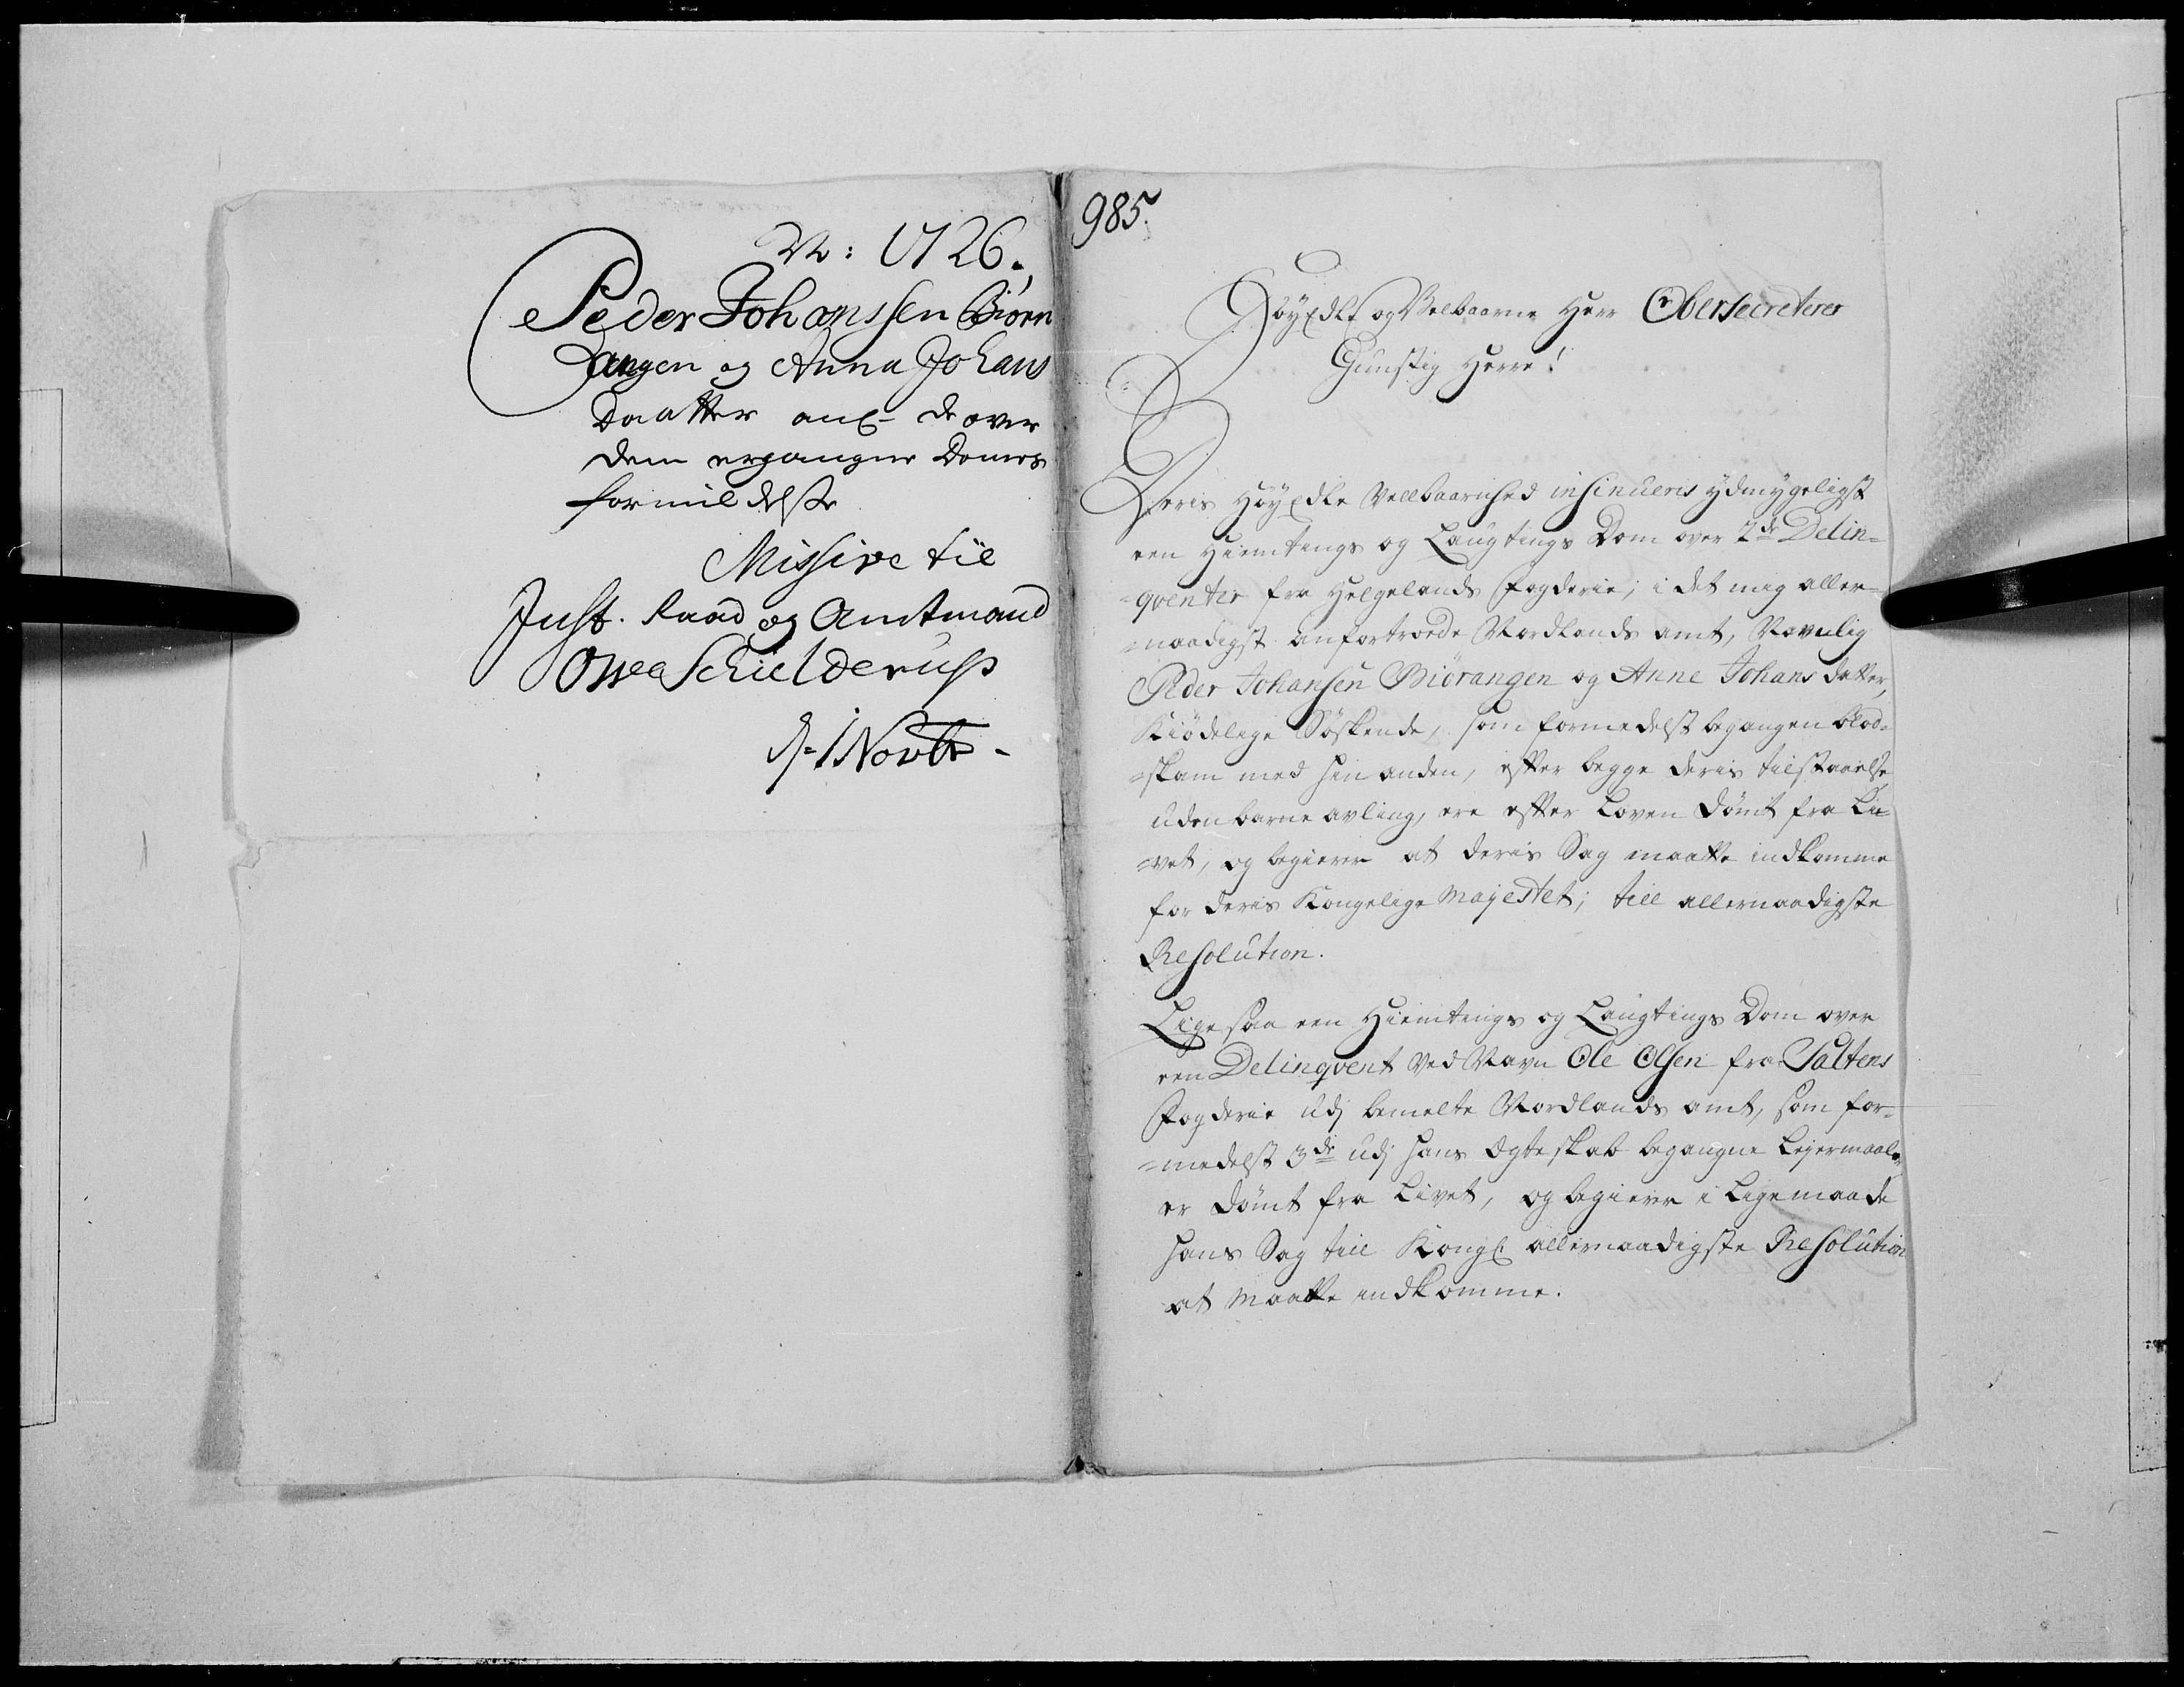 No: 1726.
Peder Johanssen Biørn
Jangen og Anna Johans
Daatter ang: de over
dem ergangne Domes
formildelse
Missive til
Just. Raad og Amtmand
Ove Schielderup
d: 1 Novbr
985.
HøyEdle og Velbaarne Herr Obersecreterer
Gunstig Herre!
Deris HøyEdle Vellbaarnhed insinueris ydmygeligst
een Hiemtings og Laugtings Dom over 2de Delin=
=qventer fra Helgelands fogderie, i det mig aller=
=naadigst anfortroede Nordlands amt, Navnlig
Peder Johansen Biörangen og Anne Johans datter,
Kiödelige Söskende, som formedelst begangen blod=
=skam med hin anden, efter begge deris tilstaaelse
uden barne avling, ere efter Loven dömt fra Li=
=vet, og begierer at deris Sag maatte indkomme
for deris Kongelige Majestet; till allernaadigste
Resolution.
Lige saa een Hiemtings og Laugtings Dom over
een Delinqvent ved Navn Ole Olsen fra Saltens
Fogderie udj bemelte Nordlands amt, som for=
=medelst 3de udj hans Egteskab begangne Leyermaaler
er dömt fra Livet, og begierer i Ligemaade
hans Sag till Kongl. allernaadigste Resolution
at maatte indkomme.